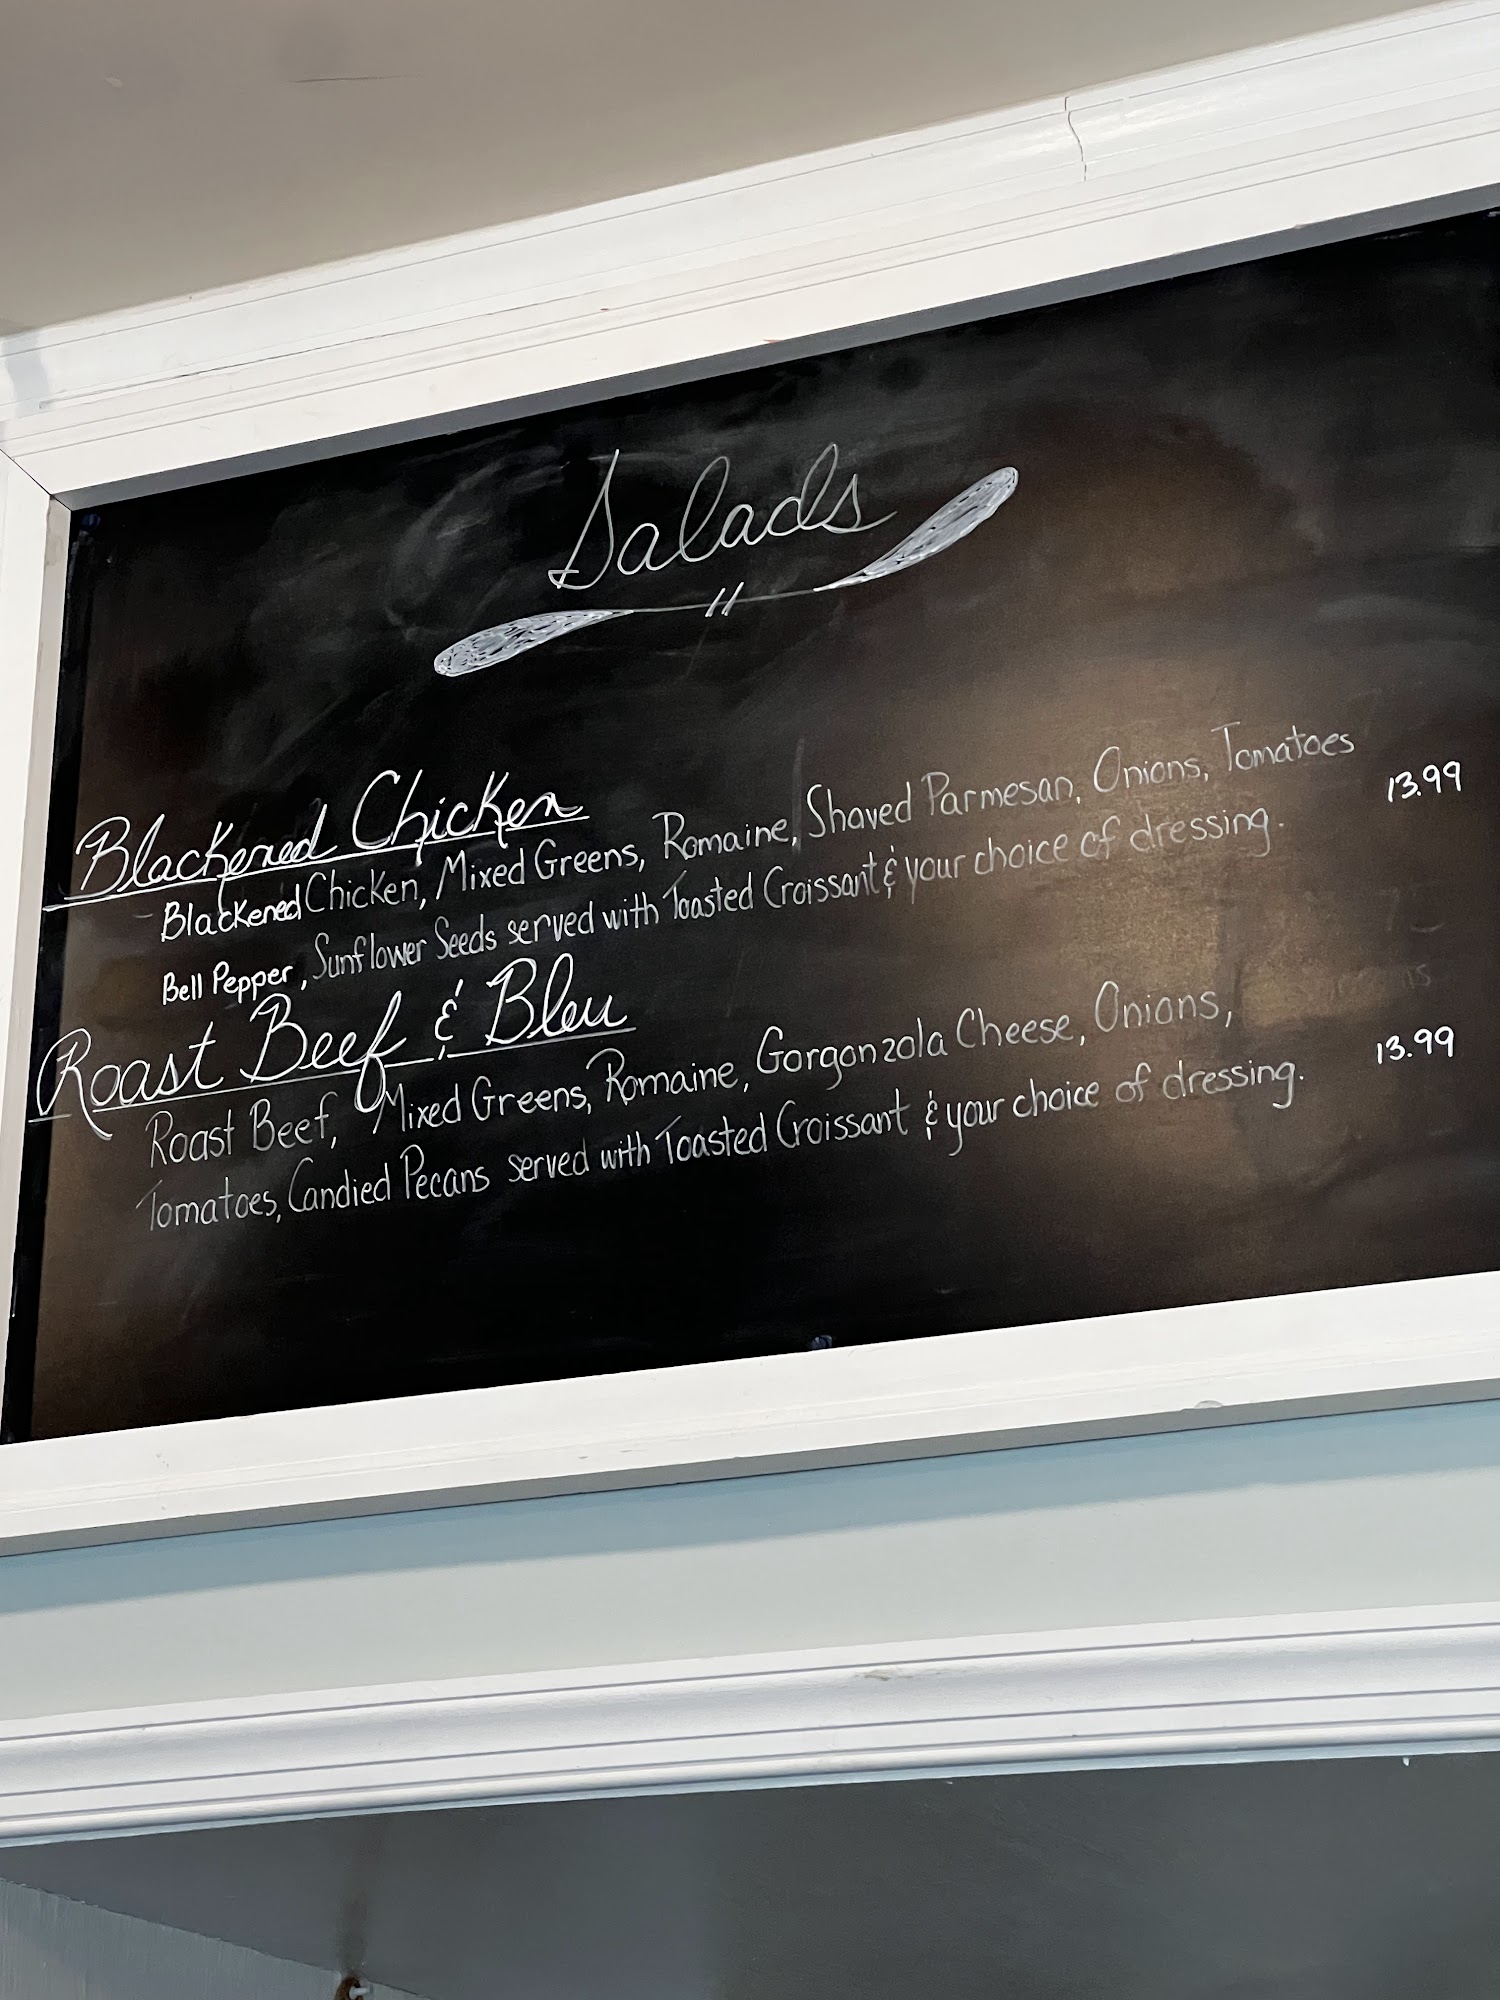 Salads
Blackened Chicken
- Blackened Chicken, Mixed Greens, Romaine, Shaved Parmesan, Onions, Tomatoes
13.99
Bell Pepper, Sunflower Seeds served with Toasted Croissant & your choice of dressing.
Roast Beef & Bleu
Roast Beef, Mixed Greens, Romaine, Gorgonzola Cheese, Onions,
13.99
Tomatoes, Candied Pecans served with Toasted Croissant & your choice of dressing.